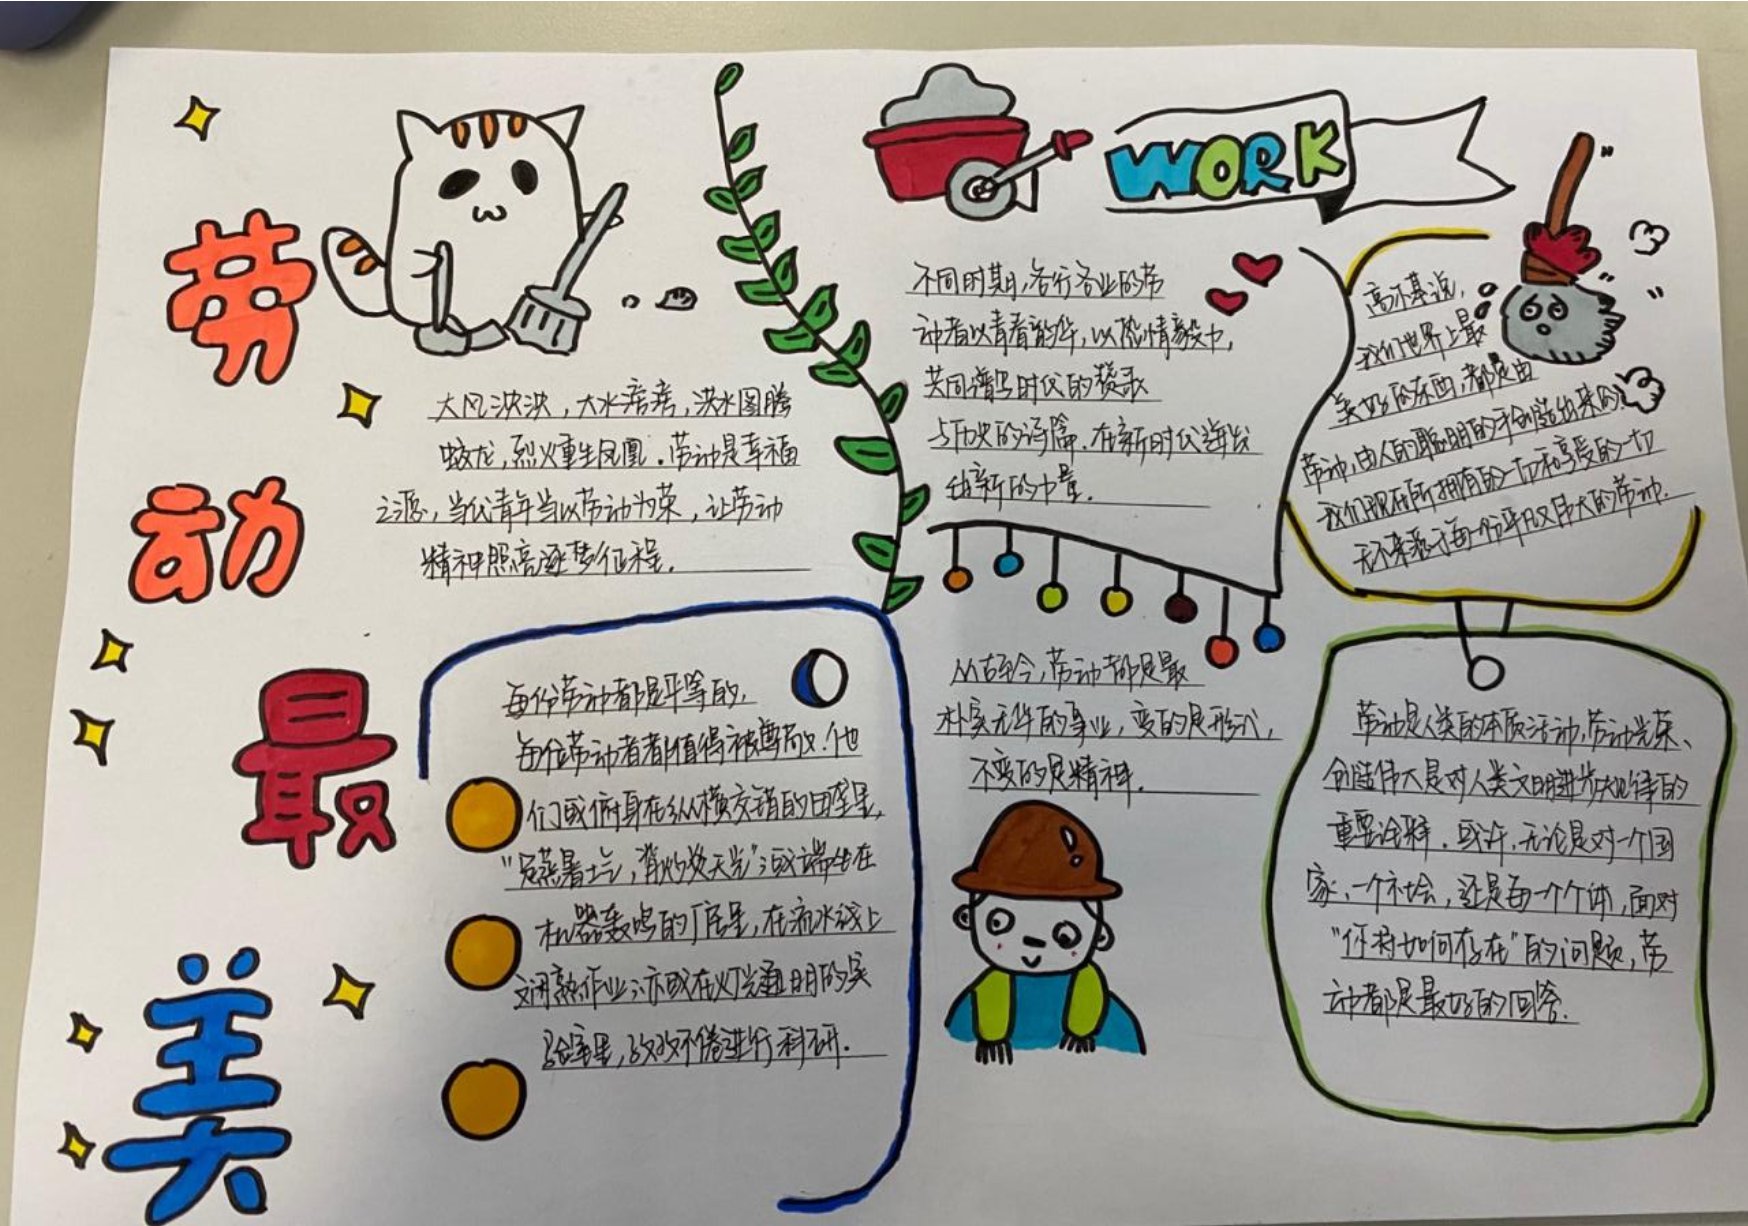 劳动最美
WORK
大风泱泱，大水滂滂，洪水图腾
蛟龙，烈火重生凤凰。劳动是幸福
之源，当代青年当以劳动为荣，让劳动
精神照亮逐梦征程。
每份劳动都是平等的，
每位劳动者都值得被尊敬。他
们或俯身在纵横交错的田垄里，
"足蒸暑土气，背灼炎天光"；或端坐在
机器轰鸣的厂房里，在流水线上
娴熟作业；亦或在灯光通明的实
验室里，孜孜不倦进行科研。
不同时期，各行各业的劳
动者以青春韶华，以热情毅力，
共同谱写时代的赞歌
与历史的诗篇。在新时代
新的力量。
从古至今，劳动都是最
朴实无华的事业，变的是形式，
不变的是精神。
高尔基说，
我们世界上最
美好的东西，都是由
劳动，由人的聪明的手创造出来的。
我们现在所拥有的一切和享受的一切
无不来源于每一份平凡又伟大的劳动。
劳动是人类的本质活动，劳动光荣、
创造伟大是对人类文明进步规律的
重要诠释。或许，无论是对一个国
家、一个社会，还是每一个个体，面对
"你将如何存在"的问题，劳
动都是最好的回答。